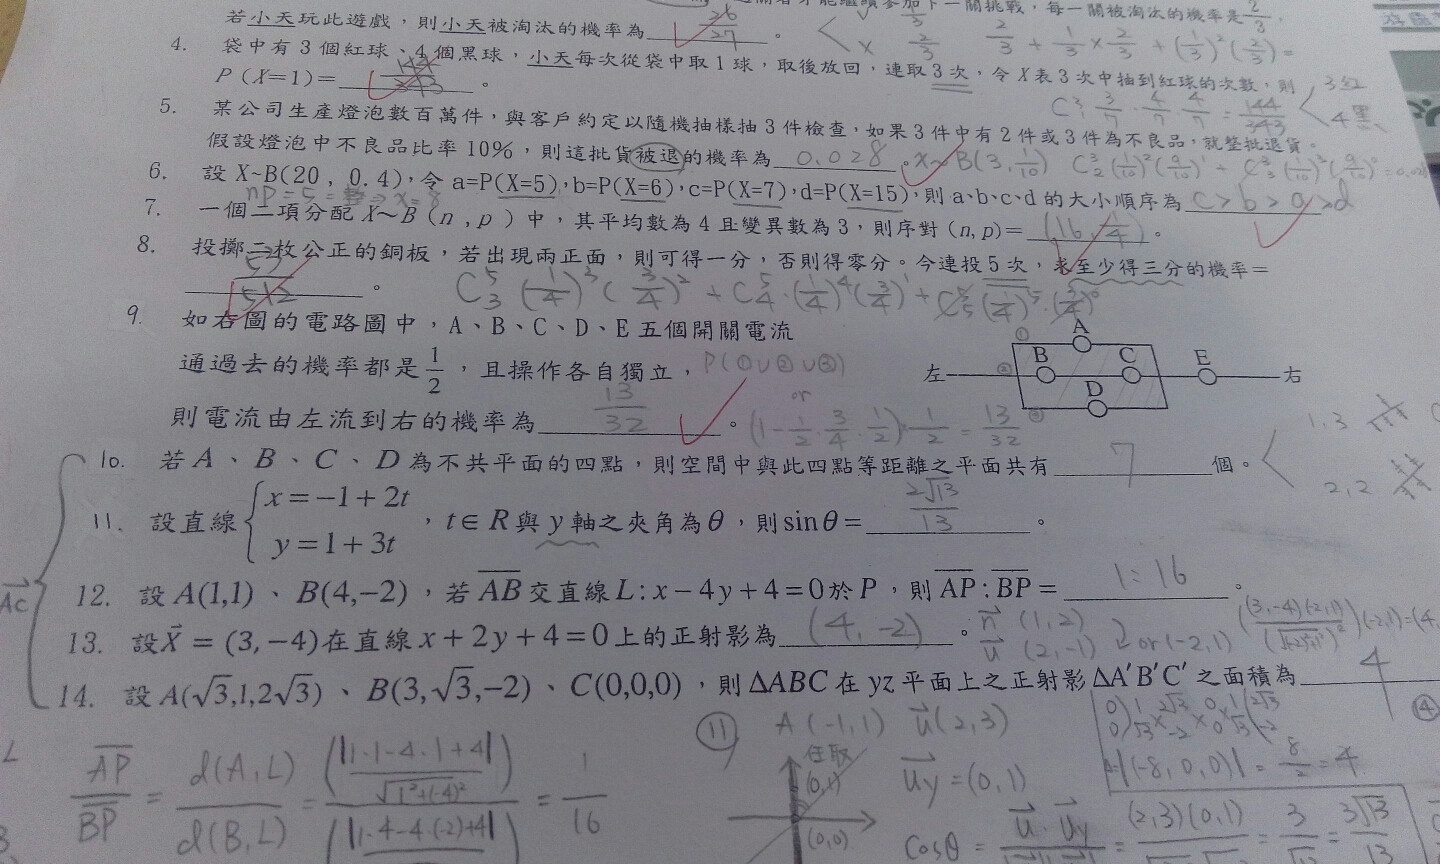 若小天玩此遊戲，則小天被淘汰的機率為 26/27 。
2/3 + 1/3 × 2/3 + (1/3)²(2/3) =
4. 袋中有 3 個紅球、4 個黑球，小天每次從袋中取 1 球，取後放回，連取 3 次，令 X 表 3 次中抽到紅球的次數，則
3紅
4黑
P (X=1)= 144/343 。
5. 某公司生產燈泡數百萬件，與客戶約定以隨機抽樣抽 3 件檢查，如果 3 件中有 2 件或 3 件為不良品，就整批退貨。
假設燈泡中不良品比率 10%，則這批貨被退的機率為 0.028 。 X~B(3, 1/10)
6. 設 X~B(20 , 0.4)，令 a=P(X=5)，b=P(X=6)，c=P(X=7)，d=P(X=15)，則 a、b、c、d 的大小順序為 c>b>a>d
7. 一個二項分配 X~B (n , p ) 中，其平均數為 4 且變異數為 3，則序對 (n, p)= (16, 1/4) 。
8. 投擲二枚公正的銅板，若出現兩正面，則可得一分，否則得零分。今連投 5 次，求至少得三分的機率＝
53/512 。
9. 如右圖的電路圖中，A、B、C、D、E 五個開關電流
通過去的機率都是 1/2 ，且操作各自獨立， P(①∪②∪③)
or
則電流由左流到右的機率為 13/32 。 (1 - 1/2 · 3/4 · 1/2) · 1/2 = 13/32
① A
左 ② B C E 右
③ D
10. 若 A 、 B 、 C 、 D 為不共平面的四點，則空間中與此四點等距離之平面共有 7 個。
1,3
2,2
11. 設直線 { x = −1 + 2t
y = 1 + 3t ，t ∈ R 與 y 軸之夾角為 θ ，則 sin θ = 2√13/13 。
12. 設 A(1,1) 、 B(4,−2) ，若 AB 交直線 L : x − 4y + 4 = 0 於 P ，則 AP : BP = 1:16 。
13. 設 X = (3,−4) 在直線 x + 2y + 4 = 0 上的正射影為 (4,-2) 。 n (1,2)
u (2,-1) or (-2,1)
14. 設 A(√3,1,2√3) 、 B(3,√3,−2) 、 C(0,0,0) ，則 ΔABC 在 yz 平面上之正射影 ΔA′B′C′ 之面積為 4
AC
AP/BP = d(A,L)/d(B,L) = (|1·1-4·1+4|/√(1²+(-4)²)) / (|1·4-4·(-2)+4|) = 1/16
⑪ A (-1,1) u (2,3)
任取
(0,1)
(0,0)
uy = (0,1)
|(-8,0,0)| = 8/2 = 4
④
cosθ = u · uy = (2,3)(0,1) = 3 = 3√13/13